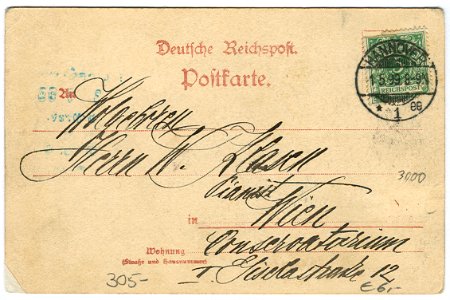 Deutsche Reichspost.
Postkarte.
HANNOVER
1.5.99.8-9V
* 1 *
REICHSPOST
An
Wolgeboren
Herrn W.
Pianist
3000
in Wien
Wohnung
(Straße und Hausnummer)
Conservatorium
I 12
305-
€6,-